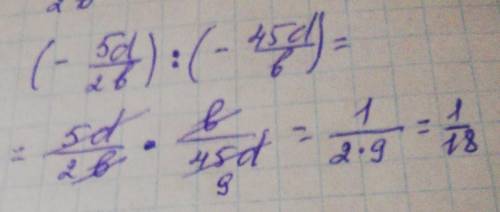 (- 5d/2b) : (- 45d/b) =
= 5d/2b · b/45d 9 = 1/2·9 = 1/18